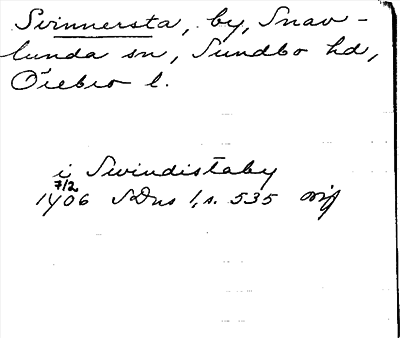 Svinnersta, by, Snav-
lunda sn, Sundbo hd,
Örebro l.
i Swindistaby
7/2
1406 SDns 1, s. 535 orig